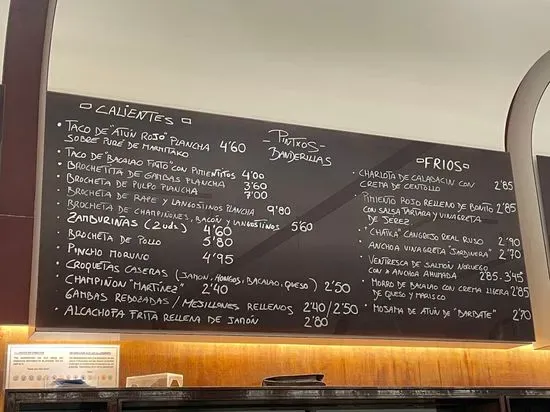 CALIENTES
• TACO DE "ATÚN ROJO" PLANCHA
SOBRE PURÉ DE MARMITAKO 4'60
TACO DE "BACALAO FRITO" CON PIMIENTITOS 4'00
• BROCHETITA DE GAMBAS PLANCHA 3'60
• BROCHETA DE PULPO PLANCHA 7'00
• BROCHETA DE RAPE Y LANGOSTINOS PLANCHA 9'80
• BROCHETA DE CHAMPIÑONES, BACON Y LANGOSTINOS 5'60
ZAMBURIÑAS (2 uds) 4'60
• BROCHETA DE POLLO 5'80
• PINCHO MORUNO 4'95
• CROQUETAS CASERAS (JAMON, HONGOS, BACALAO, QUESO) 2'50
CHAMPIÑON "MARTINEZ" 2'40
GAMBAS REBOZADAS / MEJILLONES RELLENOS 2'40/2'50
• ALCACHOFA FRITA RELLENA DE JAMÓN 2'80
PINTXOS
BANDERILLAS
FRIOS
• CHARLOTA DE CALABACIN CON
CREMA DE CENTOLLO 2'85
PIMIENTO ROJO RELLENO DE BONITO
CON SALSA TARTARA Y VINAGRETA 2'85
DE JEREZ
• "CHATKA" CANGREJO REAL RUSO 2'90
ANCHOA VINAGRETA "JARDINERA" 2'70
• VENTRESCA DE SALMÓN NORUEGO
CON ANCHOA AHUMADA 2'85 - 3'45
• MORRO DE BACALAO CON CREMA LIGERA
DE QUESO Y MARISCO 2'85
• MOJAMA DE ATÚN DE "BARBATE" 2'70